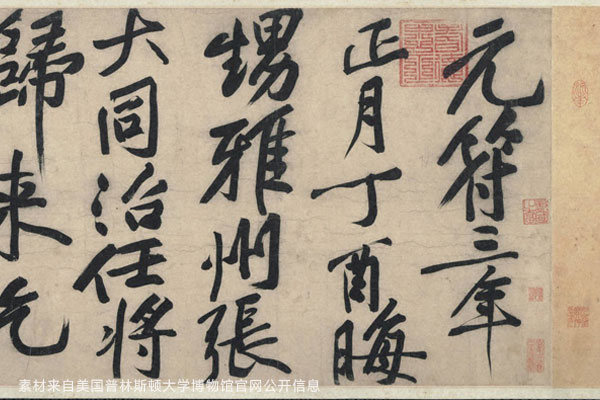 元符三年
正月丁酉晦
甥雅州張
大同治任將
歸来乞
素材来自美国普林斯顿大学博物馆官网公开信息